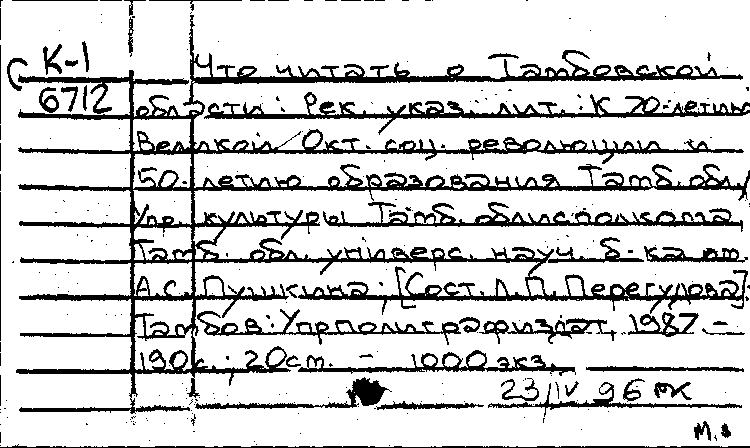 К-1 Что читать о Тамбовской
6712 области : Рек. указ. лит. : К 70-летию
Великой Окт. соц. революции и
50-летию образования Тамб. обл. /
Упр. культуры Тамб. облисполкома,
Тамб. обл. универс. науч. б-ка им.
А.С. Пушкина ; [Сост. Л.П. Перегудова].
Тамбов : Упрполиграфиздат, 1987. -
190 с. ; 20 см. - 1000 экз.
23/IV 96 пк
М.